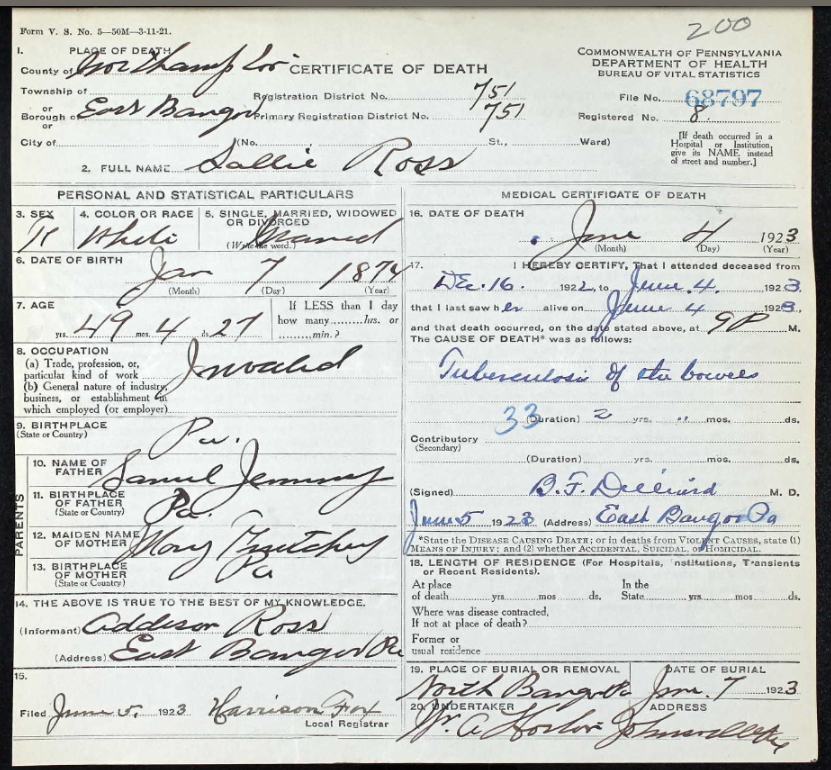 200
Form V. S. No. 5—50M—3-11-21.
1. PLACE OF DEATH
County of Northampton
CERTIFICATE OF DEATH
COMMONWEALTH OF PENNSYLVANIA
DEPARTMENT OF HEALTH
BUREAU OF VITAL STATISTICS
Township of
or
Borough of East Bangor
or
City of
Registration District No. 751
Primary Registration District No. 751
File No. 68797
Registered No. 8
(No. St., Ward)
[If death occurred in a
Hospital or Institution,
give its NAME instead
of street and number.]
2. FULL NAME Sallie Ross
PERSONAL AND STATISTICAL PARTICULARS
3. SEX
4. COLOR OR RACE White
5. SINGLE, MARRIED, WIDOWED
OR DIVORCED
(Write the word.) Married
6. DATE OF BIRTH
Jan 7 1874
(Month) (Day) (Year)
7. AGE
49 yrs. 4 mos. 27 ds.
If LESS than 1 day
how many........hrs. or
..........min.?
8. OCCUPATION
(a) Trade, profession, or,
particular kind of work
Invalid
(b) General nature of industry,
business, or establishment in
which employed (or employer)
9. BIRTHPLACE
(State or Country)
Pa.
PARENTS
10. NAME OF
FATHER
Samuel
11. BIRTHPLACE
OF FATHER
(State or Country)
Pa.
12. MAIDEN NAME
OF MOTHER
Mary
13. BIRTHPLACE
OF MOTHER
(State or Country)
Pa
14. THE ABOVE IS TRUE TO THE BEST OF MY KNOWLEDGE.
(Informant) Addison Ross
(Address) East Bangor Pa
15.
Filed June 5, 1923 Harrison Fox
Local Registrar
MEDICAL CERTIFICATE OF DEATH
16. DATE OF DEATH
June 4 1923
(Month) (Day) (Year)
17. I HEREBY CERTIFY, That I attended deceased from
Dec. 16. 1922, to June 4. 1923
that I last saw her alive on June 4 1923,
and that death occurred, on the date stated above, at 9 P M.
The CAUSE OF DEATH* was as follows:
Tuberculosis of the bowels
33
(Duration) 2 yrs. .. mos. ds.
Contributory
(Secondary)
(Duration) yrs. mos. ds.
(Signed) B. F. Dilliard M. D.
June 5 1923 (Address) East Bangor Pa
*State the DISEASE CAUSING DEATH; or in deaths from VIOLENT CAUSES, state (1)
MEANS OF INJURY; and (2) whether ACCIDENTAL, SUICIDAL, or HOMICIDAL.
18. LENGTH OF RESIDENCE (For Hospitals, Institutions, Transients
or Recent Residents).
At place
of death yrs. mos ds.
In the
State yrs. mos. ds.
Where was disease contracted,
If not at place of death?
Former or
usual residence
19. PLACE OF BURIAL OR REMOVAL
North Bangor Pa
DATE OF BURIAL
June. 7 1923
20. UNDERTAKER
Wm. A
ADDRESS